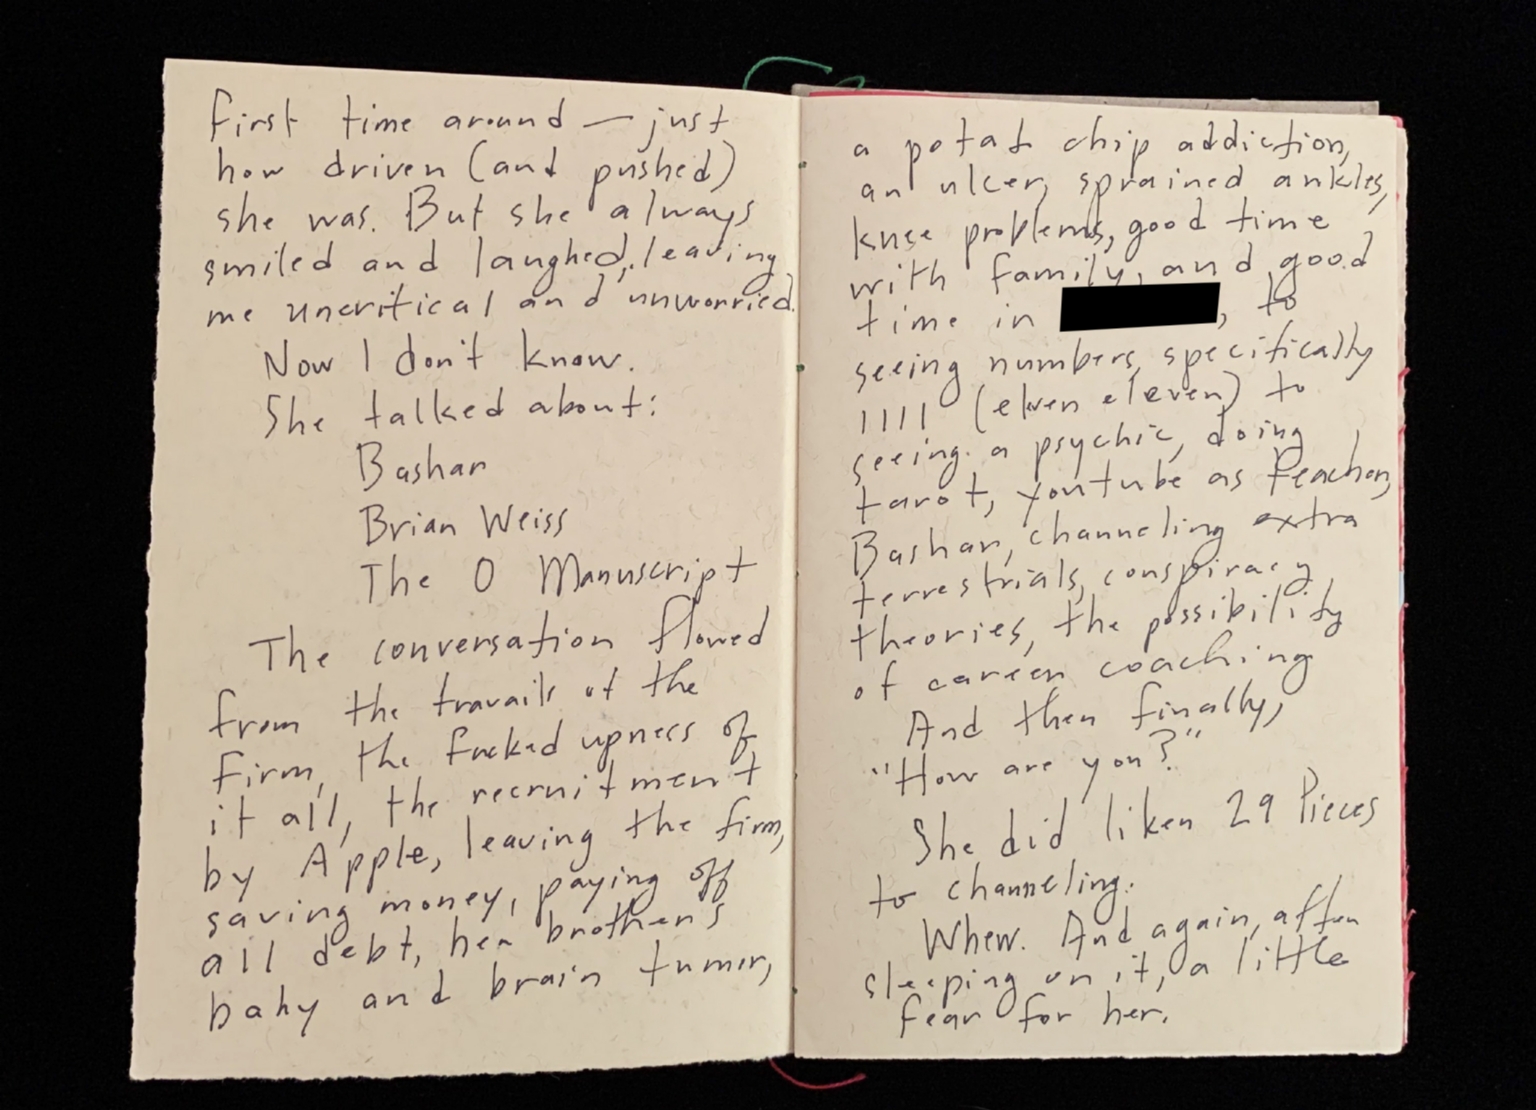 first time around — just
how driven (and pushed)
she was. But she always
smiled and laughed, leaving
me uncritical and unworried.
Now I don't know.
She talked about:
Bashar
Brian Weiss
The O Manuscript
The conversation flowed
from the travails of the
firm, the fucked upness of
it all, the recruitment
by Apple, leaving the firm,
saving money, paying off
all debt, her brother's
baby and brain tumor,
a potat chip addiction,
an ulcer, sprained ankles,
knee problems, good time
with family, and good
time in , to
seeing numbers, specifically
1111 (eleven eleven) to
seeing a psychic, doing
tarot, youtube as teacher,
Bashar, channeling extra
terrestrials, conspiracy
theories, the possibility
of career coaching
And then finally,
"How are you?"
She did liken 29 Pieces
to channeling.
Whew. And again, after
sleeping on it, a little
fear for her.